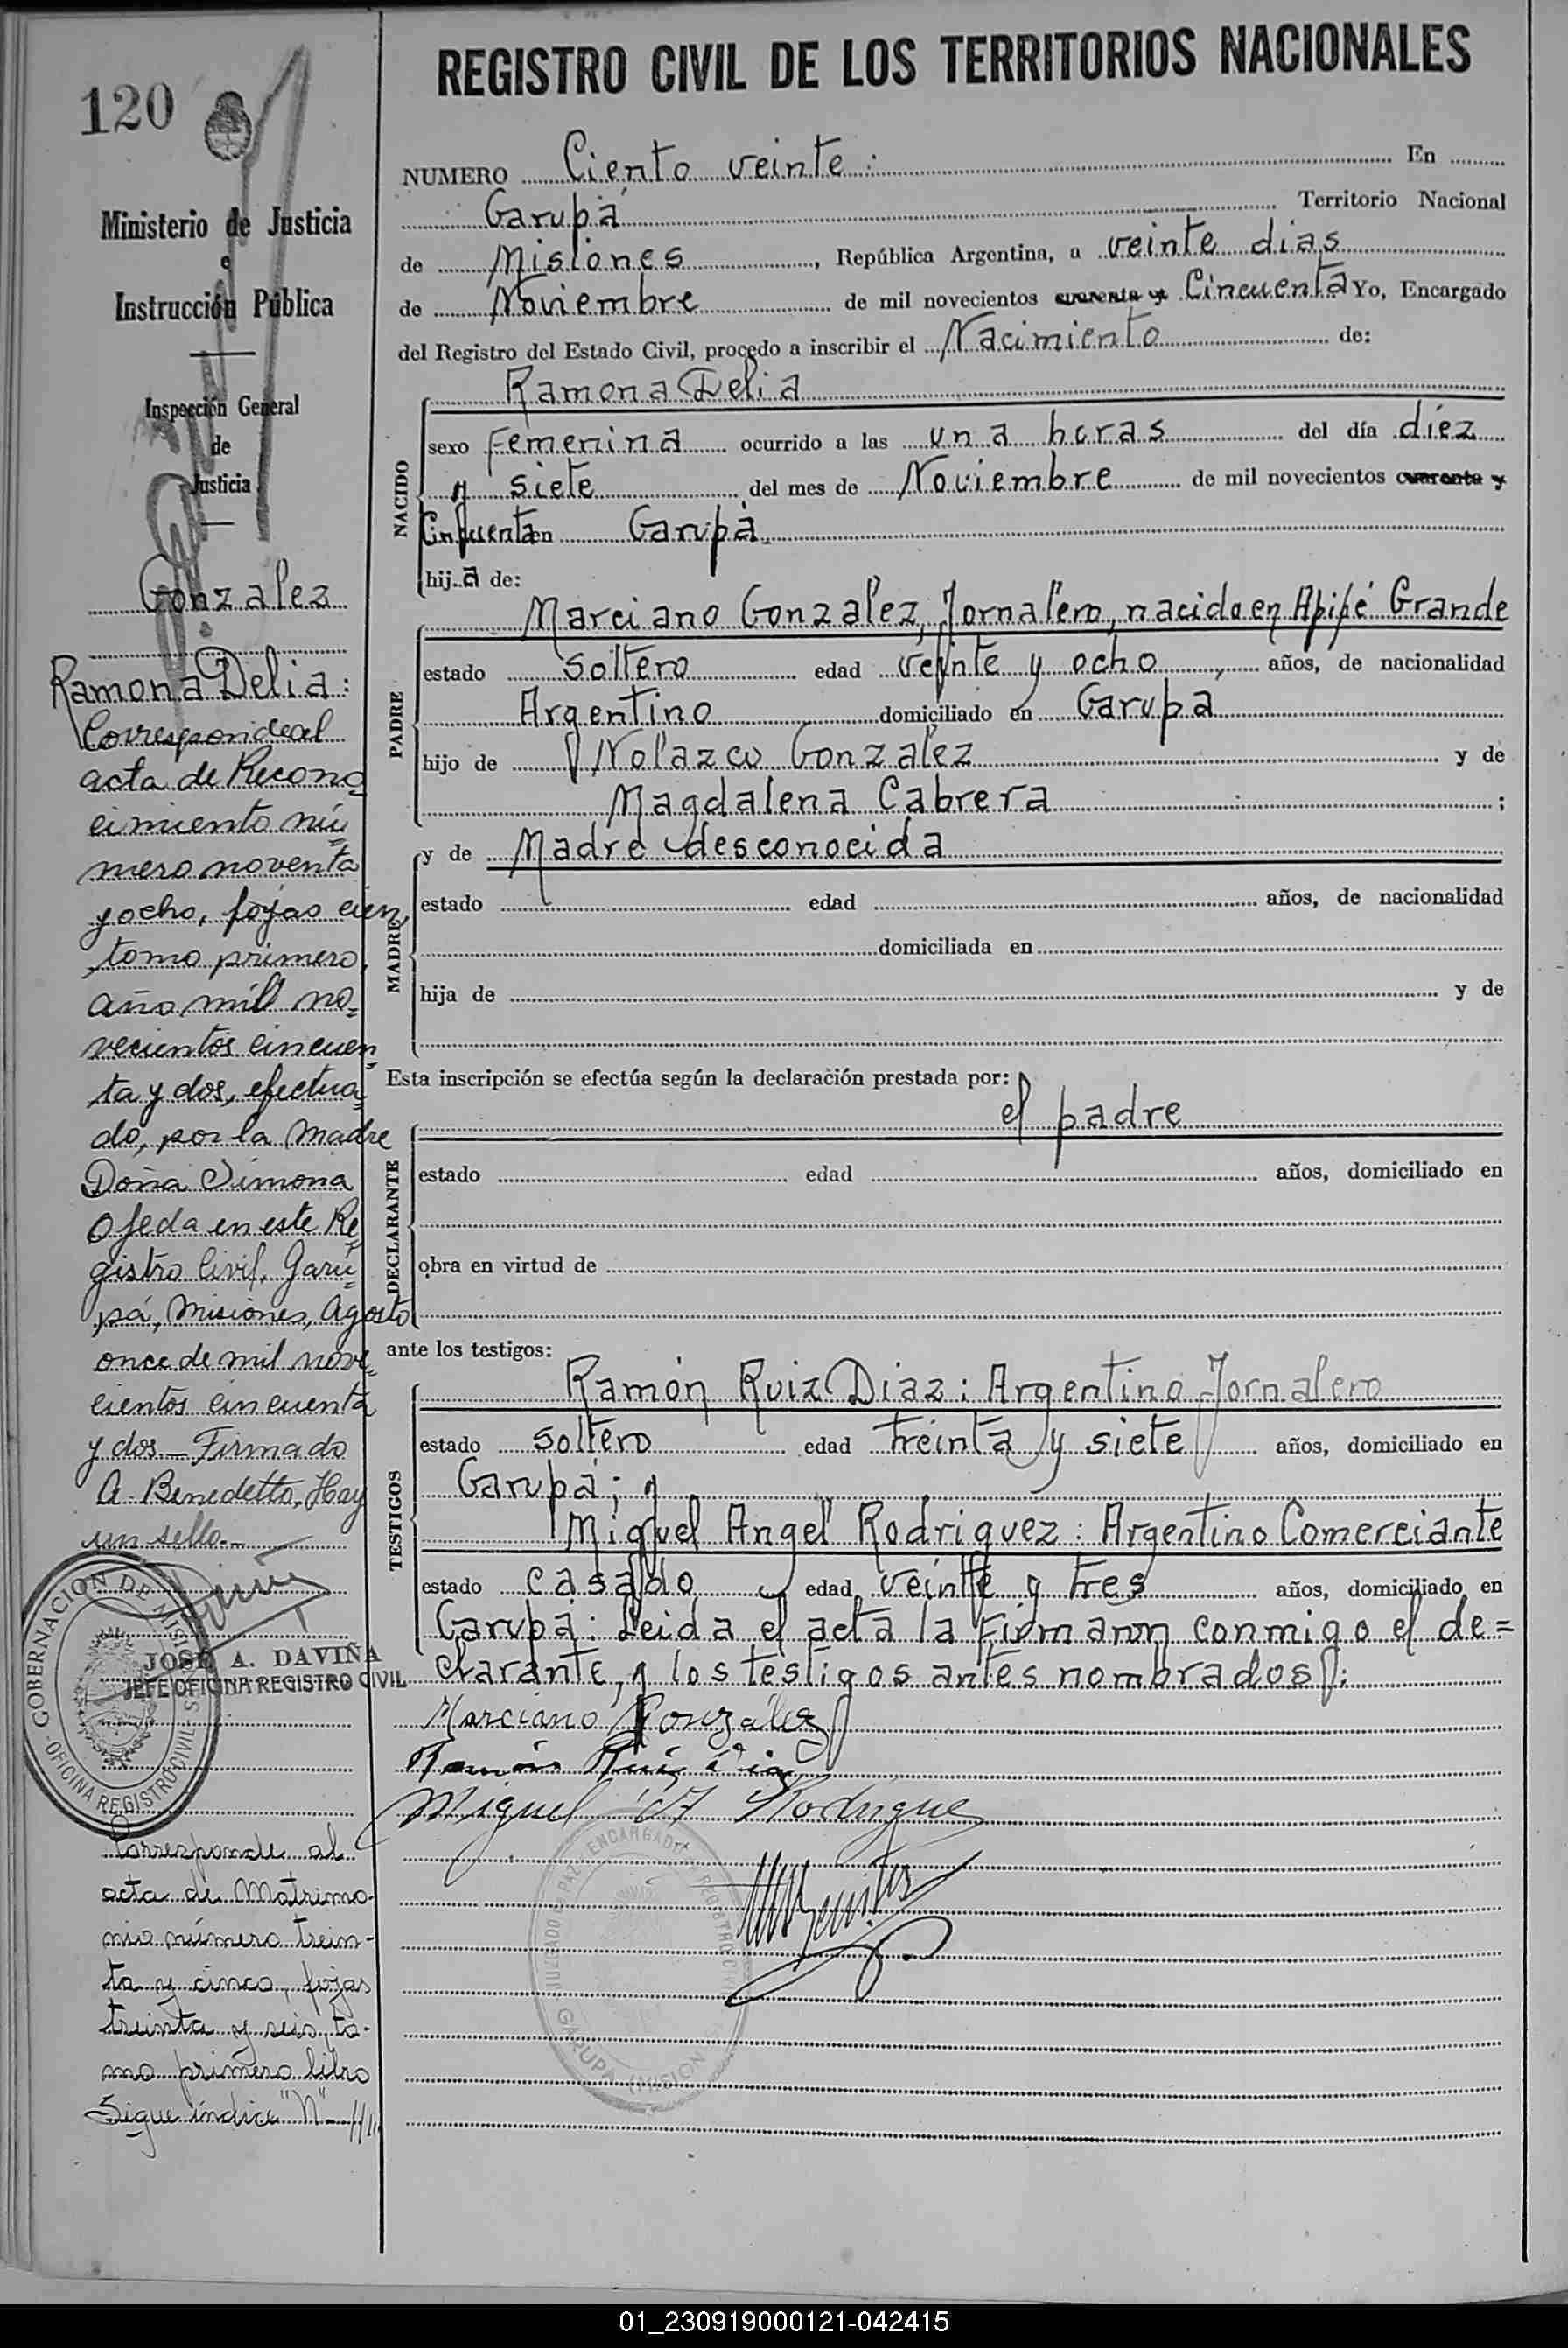 120
Ministerio de Justicia
e
Instrucción Pública
Inspección General
de
Justicia
Gonzalez
Ramona Delia:
Corresponde al
acta de Recono
cimiento nú
mero noventa
y ocho, fojas cien,
tomo primero,
año mil no
vecientos cincuen
ta y dos, efectua
do, por la madre
Doña Simona
Ojeda en este Re
gistro Civil, Garu
pá, Misiones, Agosto
once de mil nove
cientos cincuenta
y dos - Firmado
A. Benedetto, Hay
un sello.-
GOBERNACION DE MISIONES
OFICINA REGISTRO CIVIL
JOSE A. DAVIÑA
JEFE OFICINA REGISTRO CIVIL
Corresponde al
acta de Matrimo-
nio número trein-
ta y cinco, fojas
treinta y seis, to-
mo primero libro
Sigue índice "N"
REGISTRO CIVIL DE LOS TERRITORIOS NACIONALES
NUMERO Ciento veinte: En
Garupá Territorio Nacional
de Misiones, República Argentina, a veinte dias
de Noviembre de mil novecientos cuarenta y Cincuenta Yo, Encargado
del Registro del Estado Civil, procedo a inscribir el Nacimiento de:
NACIDO
Ramona Delia
sexo Femenina ocurrido a las una horas del día diez
y siete del mes de Noviembre de mil novecientos cuarenta y
Cincuenta en Garupà
hija de:
PADRE
Marciano Gonzalez, Jornalero, nacido en Apipé Grande
estado Soltero edad veinte y ocho, años, de nacionalidad
Argentino domiciliado en Garupa
hijo de Nolazco Gonzalez y de
Magdalena Cabrera ;
MADRE
y de Madre desconocida
estado edad años, de nacionalidad
domiciliada en
hija de y de
Esta inscripción se efectúa según la declaración prestada por:
DECLARANTE
el padre
estado edad años, domiciliado en
obra en virtud de
ante los testigos:
TESTIGOS
Ramón Ruiz Diaz: Argentino Jornalero
estado Soltero edad treinta y siete años, domiciliado en
Garupá; y
Miguel Angel Rodriguez: Argentino Comerciante
estado casado edad veinte y tres años, domiciliado en
Garupá: Leida el acta la Firmann conmigo el de=
clarante, y los testigos antes nombrados:
Marciano González
Ramón Ruiz Diaz
Miguel A Rodriguez
JUZGADO DE PAZ ENCARGADO REGISTRO CIVIL
GARUPA (MISIONES)